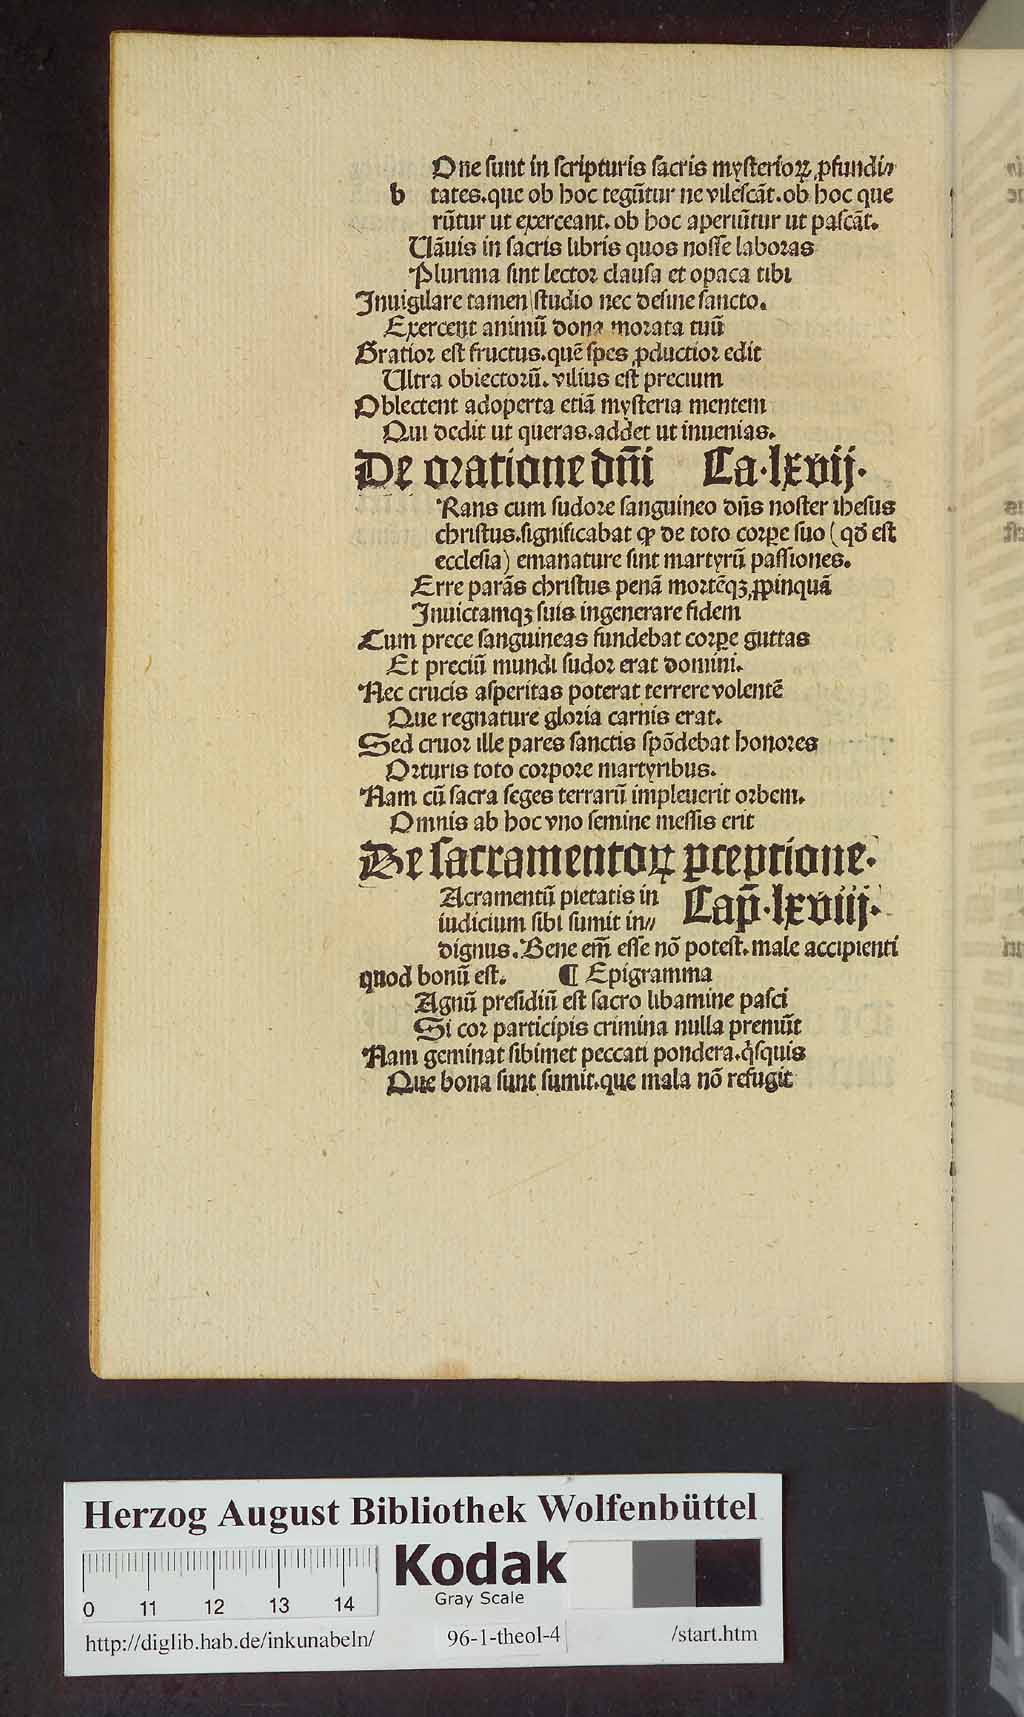 One sunt in scripturis sacris mysterioꝝ ꝓfundi⸗
b tates.que ob hoc tegūtur ne vilescāt.ob hoc que
rūtur ut exerceant.ob hoc aperiūtur ut pascāt.
Uāuis in sacris libris quos nosse laboras
Plurima sint lector clausa et opaca tibi
Inuigilare tamen studio nec desine sancto.
Exercent animū dona morata tuū
Gratior est fructus.quē spes ꝓductior edit
Ultra obiectorū.vilius est precium
Oblectent adoperta etiā mysteria mentem
Qui dedit ut queras.addet ut inuenias.
De oratione dn̄i Ca.lxvij.
Rans cum sudore sanguineo dn̄s noster ihesus
christus.significabat ꝙ de toto corꝑe suo (qđ est
ecclesia) emanature sint martyrū passiones.
Erre parās christus penā mortēqꝫ ꝓpinquā
Inuictamqꝫ suis ingenerare fidem
Cum prece sanguineas fundebat corꝑe guttas
Et preciū mundi sudor erat domini.
Nec crucis asperitas poterat terrere volentē
Que regnature gloria carnis erat.
Sed cruor ille pares sanctis spōdebat honores
Orturis toto corpore martyribus.
Nam cū sacra seges terrarū impleuerit orbem.
Omnis ab hoc vno semine messis erit
De sacramentoꝝ ꝑceptione.
Acramentū pietatis in Cap̄.lxviij.
iudicium sibi sumit in⸗
dignus.Bene em̄ esse nō potest.male accipienti
quod bonū est. ¶ Epigramma
Agnū presidiū est sacro libamine pasci
Si cor participis crimina nulla premūt
Nam geminat sibimet peccati pondera.qͥsquis
Que bona sunt sumit.que mala nō refugit
Herzog August Bibliothek Wolfenbüttel
Kodak
Gray Scale
0 11 12 13 14
http://diglib.hab.de/inkunabeln/ 96-1-theol-4 /start.htm